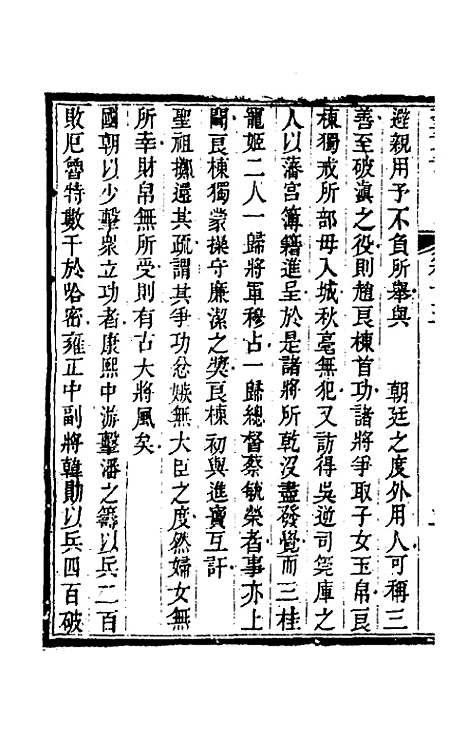 避親用予不負所舉與　朝廷之度外用人可稱三
善至破滇之役則趙良棟首功諸將爭取子女玉帛良
棟獨戒所部毋入城秋毫無犯又訪得吳逆司筦庫之
人以藩宮簿籍進呈於是諸將所乾沒盡發覺而三桂
寵姬二人一歸將軍穆占一歸總督蔡毓榮者事亦上
聞良棟獨蒙操守廉潔之獎良棟初與進寶互訐
聖祖擲還其疏謂其爭功忿嫉無大臣之度然婦女無
所幸財帛無所受則有古大將風矣
國朝以少擊衆立功者康熙中游擊潘之籌以兵二百
敗厄魯特數千於哈密雍正中副將韓勛以兵四百破